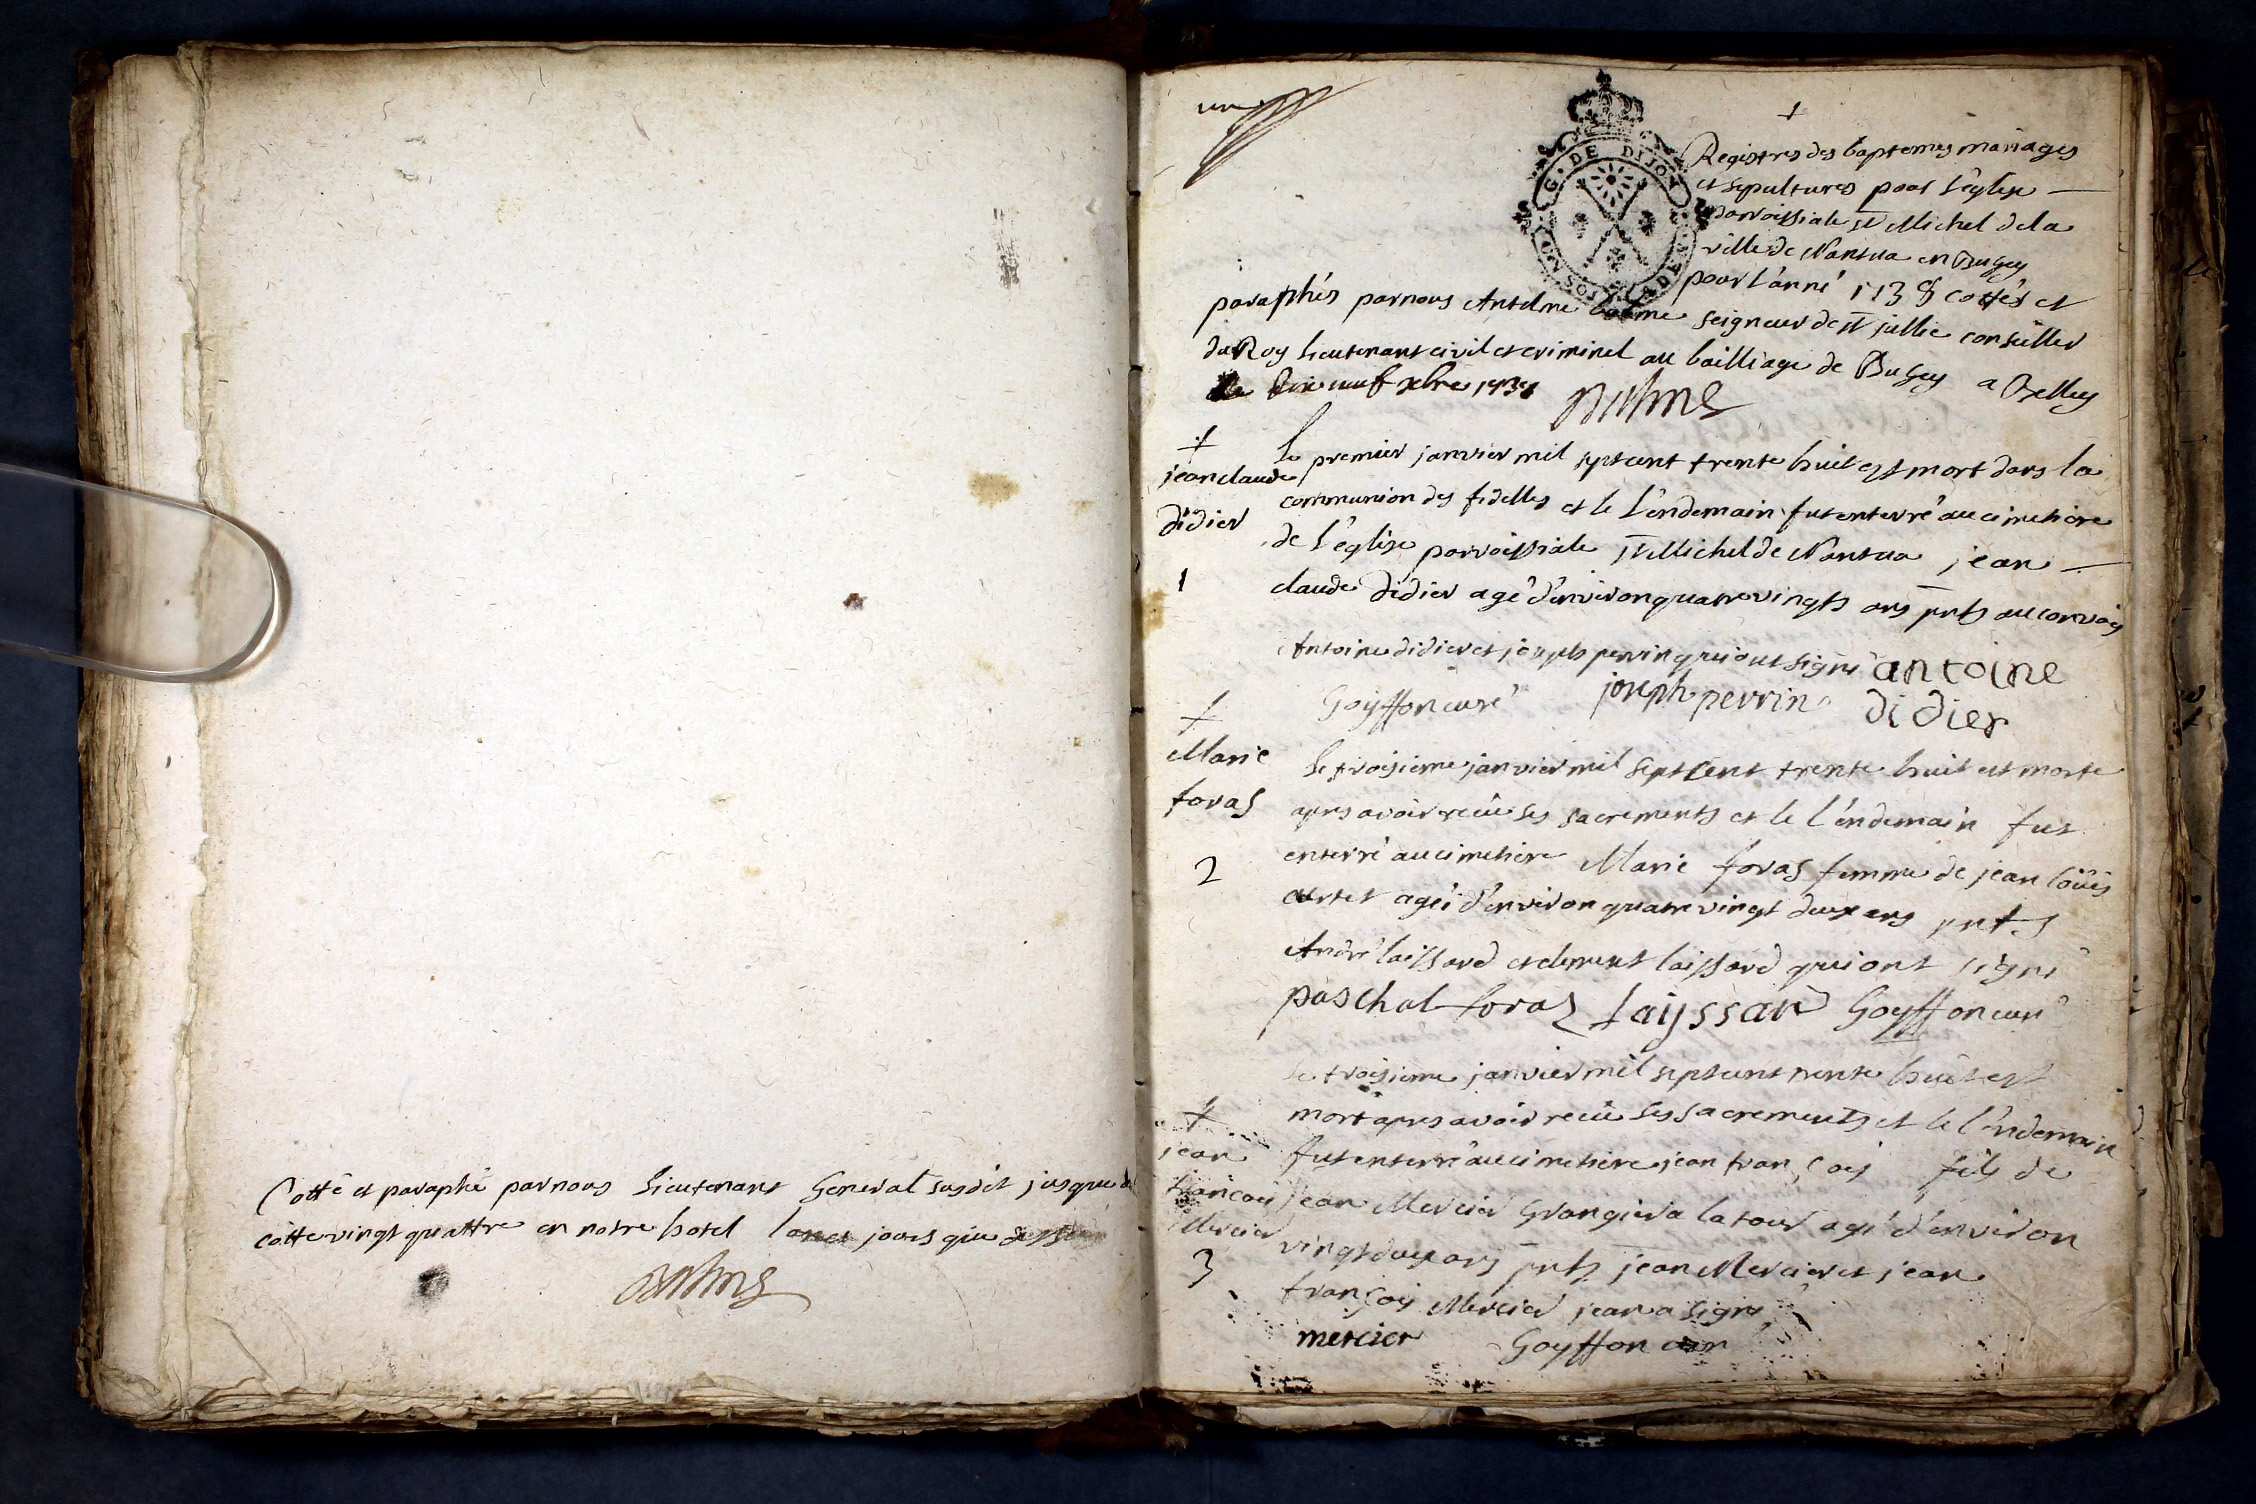 Cotté et paraphé par nous Lieutenant General susdit jusques
cotte vingt quattre en notre hotel jours que
Balme
un
G. DE DIJON
Registres des baptemes mariages
et sepultures pour l'églize
parroissiale St Michel de la
ville de Nantua en Bugey
pour l'anné 1738 cottés et
paraphés par nous Antelme balme seigneur de St jullie conseiller
du Roy Lieutenant civil et criminel au bailliage de Bugey a Belley
le dix neuf xbre
Balme
+
jean claude
didier
1
Le premier janvier mil sept cent trente huit est mort dans la
communion des fidelles et le l'endemain fut enterré au cimetiere
de l'église parroissiale St Michel de Nantua jean
claude didier agé d'environ quatre vingts ans pnts au convoy
Antoine didier et joseph perrin qui ont signé antoine
Goyffon curé joseph perrin didier
+
Marie
foras
2
Le troisieme janvier mil sept cent trente huit est morte
apres avoir recüe ses sacrements et le l'endemain fut
enterré au cimetiere Marie foras femme de jean loüis
agéé d'environ quatre vingt deux ans pnts
André laissard et clement laissard qui ont signé
paschal foraz Layssard Goyffon curé
+
jean
françois
Mercier
3
Le troisieme janvier mil sept cent trente huit est
mort apres avoir recüe ses sacrements et le l'endemain
fut enterré au cimetiere jean françois fils de
jean Mercier Grangier a la tour agé d'environ
vingt deux ans pnts jean Mercier et jean
françois Mercier jean a signé
mercier Goyffon curé